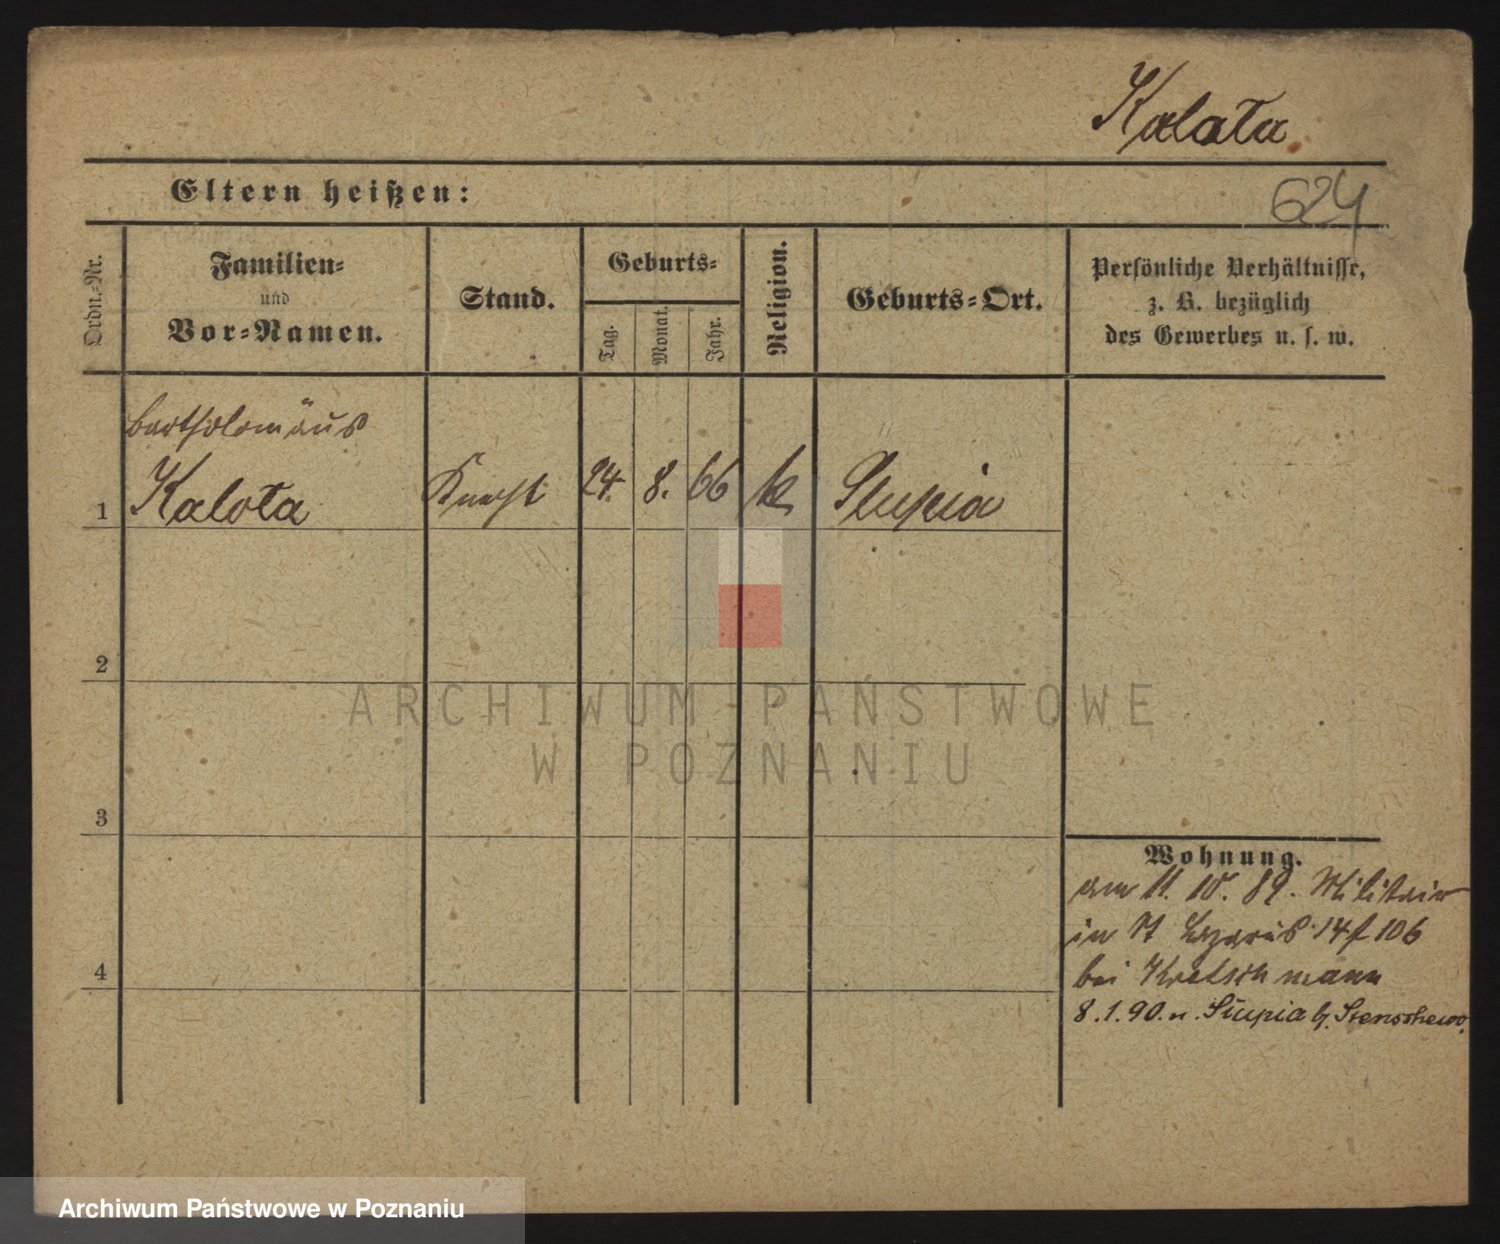 Kalota
Eltern heißen:
624
Ordn.-Nr.
Familien-
und
Vor-Namen.
Stand.
Geburts-
Tag.
Monat.
Jahr.
Religion.
Geburts-Ort.
Persönliche Verhältnisse,
z. B. bezüglich
des Gewerbes u. s. w.
Bartholomäus
1 Kalota Knecht 24. 8. 66 k Słupia
2
3
4
Wohnung.
am 11. 10. 89. Militair
in St Lazarus 14 f 106
bei Kretschmann
8.1.90. n. Słupia b. Stenschewo.
ARCHIWUM PAŃSTWOWE
W POZNANIU
Archiwum Państwowe w Poznaniu